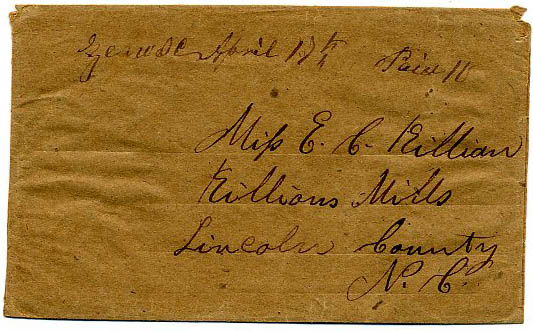 April 17th Paid 10
Miss E. C. Killian
Killians Mills
Lincoln County
N. C.